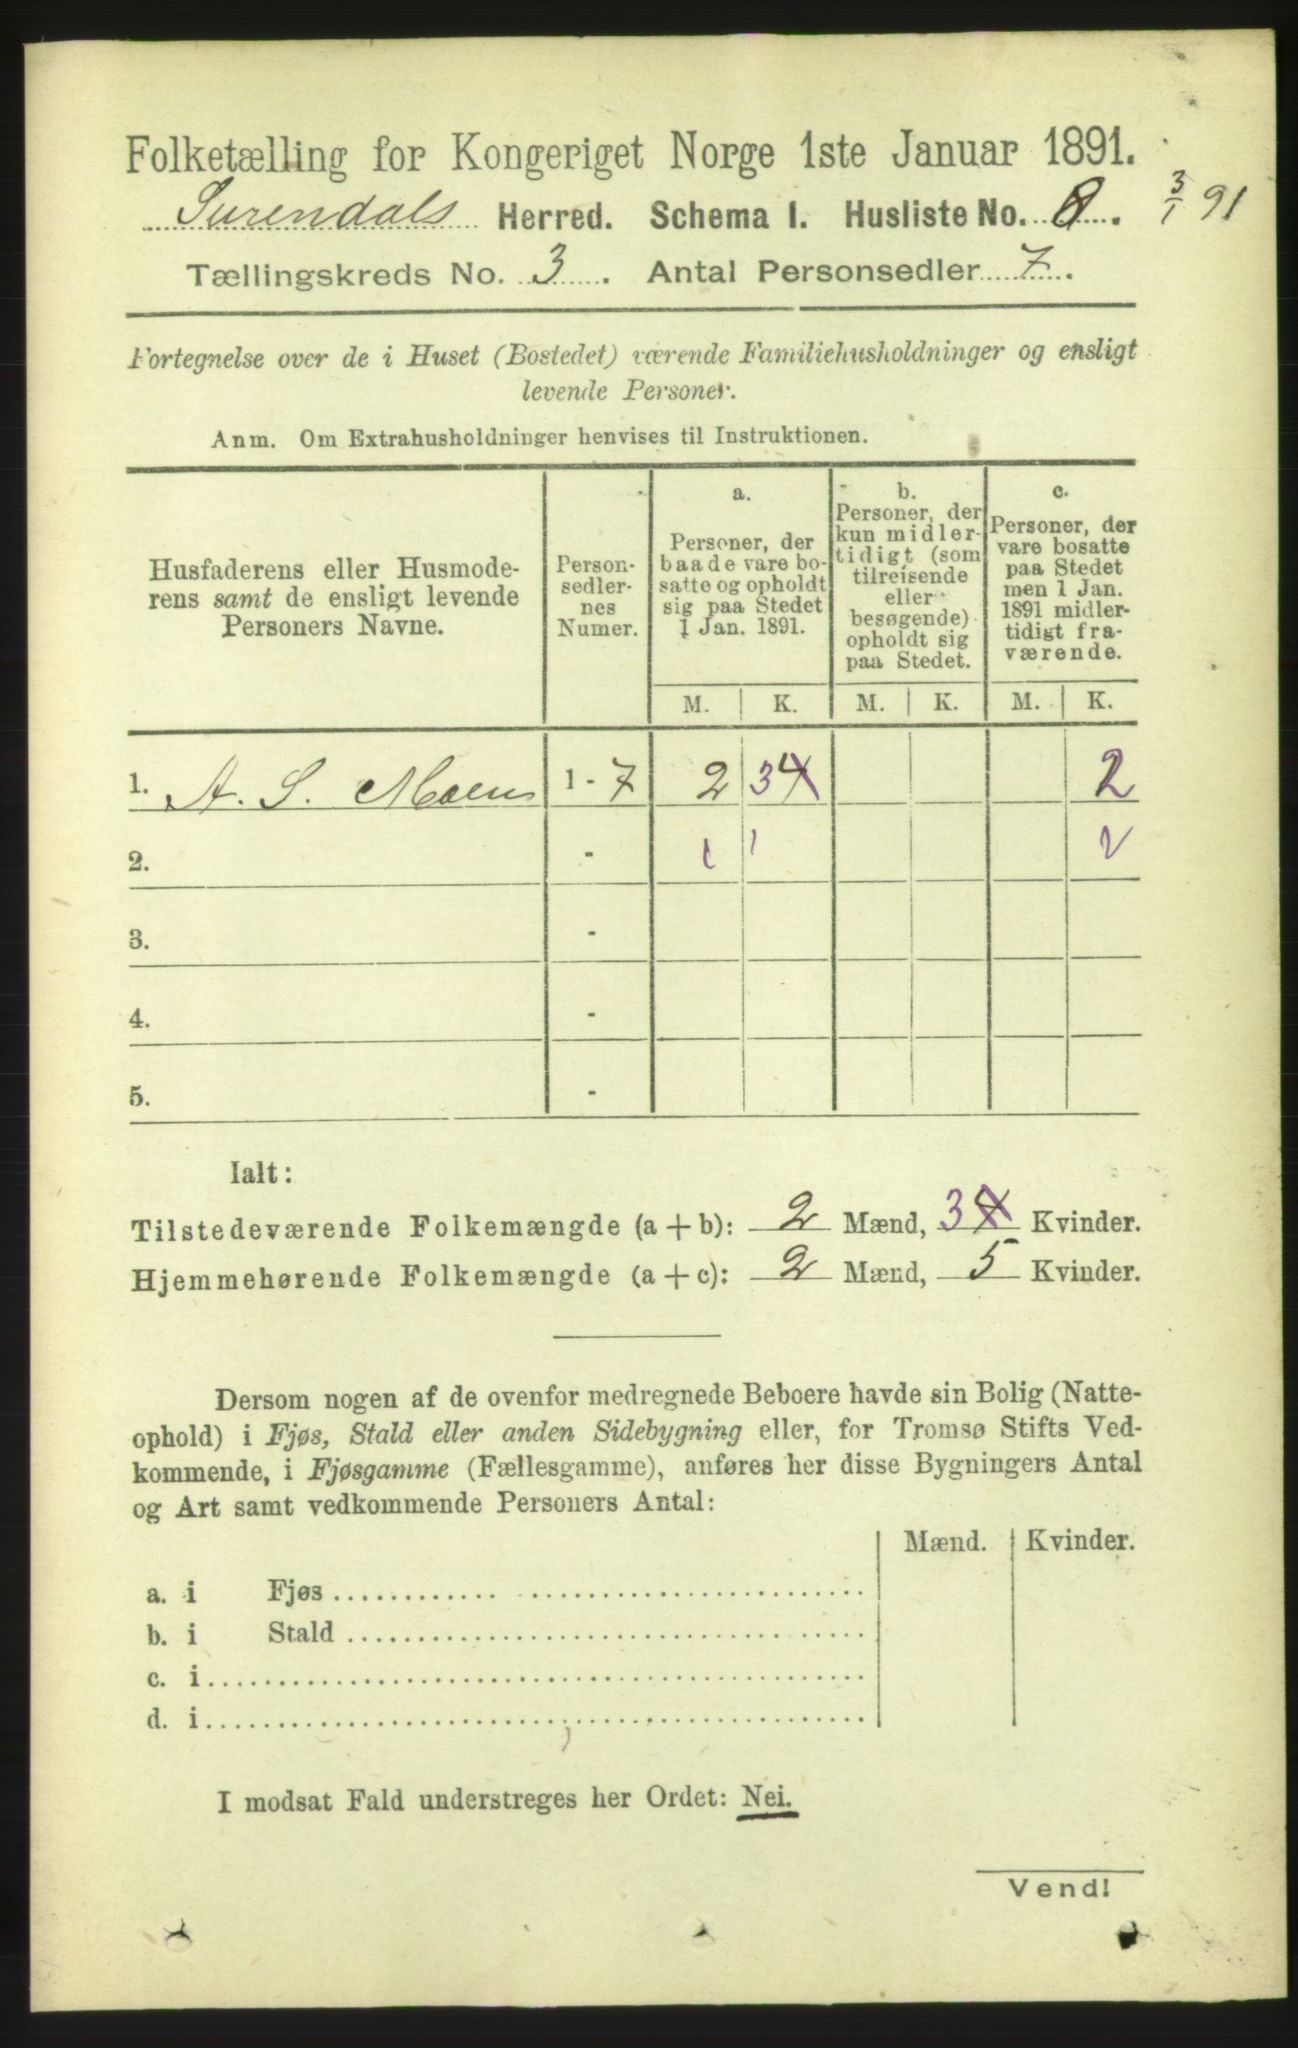 Folketælling for Kongeriget Norge 1ste Januar 1891.
Surendals Herred. Schema I. Husliste No. 8.
3/1 91
Tællingskreds No. 3. Antal Personsedler 7.
Fortegnelse over de i Huset (Bostedet) værende Familiehusholdninger og ensligt
levende Personer.
Anm. Om Extrahusholdninger henvises til Instruktionen.
Husfaderens eller Husmode-
rens samt de ensligt levende
Personers Navne.
Person-
sedler-
nes
Numer.
a.
Personer, der
baade vare bo-
satte og opholdt
sig paa Stedet
1 Jan. 1891.
b.
Personer, der
kun midler-
tidigt (som
tilreisende
eller
besøgende)
opholdt sig
paa Stedet.
c.
Personer, der
vare bosatte
paa Stedet
men 1 Jan.
1891 midler-
tidigt fra-
værende.
M. K. M. K. M. K.
1. A. S. Moen 1 - 7 2 3 4 2
2. -
3. -
4. -
5. -
Ialt:
Tilstedeværende Folkemængde (a + b): 2 Mænd, 3 4 Kvinder.
Hjemmehørende Folkemængde (a + c): 2 Mænd, 5 Kvinder.
Dersom nogen af de ovenfor medregnede Beboere havde sin Bolig (Natte-
ophold) i Fjøs, Stald eller anden Sidebygning eller, for Tromsø Stifts Ved-
kommende, i Fjøsgamme (Fællesgamme), anføres her disse Bygningers Antal
og Art samt vedkommende Personers Antal:
Mænd. Kvinder.
a. i Fjøs
b. i Stald
c. i
d. i
I modsat Fald understreges her Ordet: Nei.
Vend!